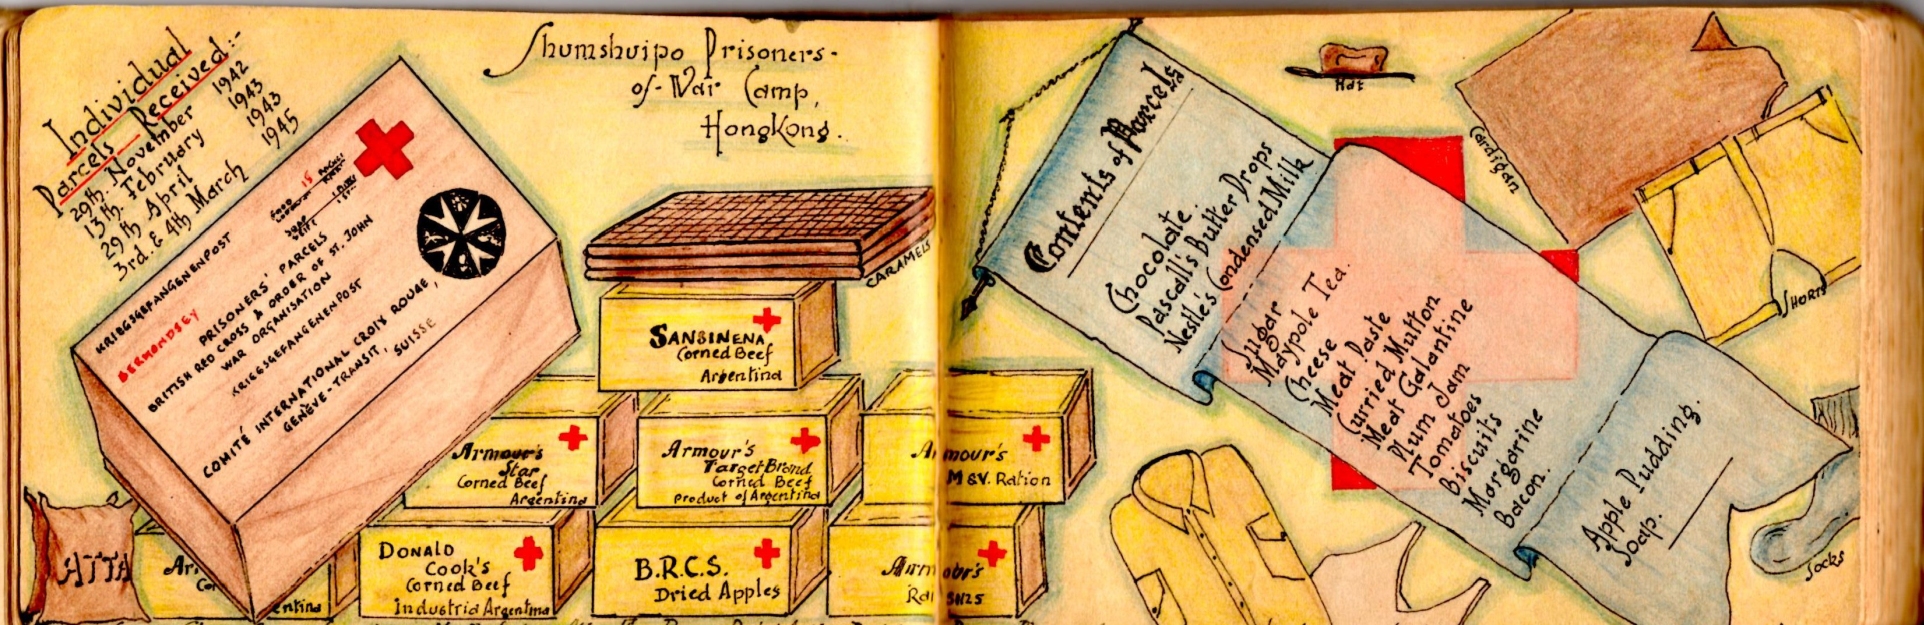 Individual
Parcels Received:-
29th. November 1942
13th. February 1943
29th April 1943
3rd. & 4th March 1945
Shumshuipo Prisoners-
of-War Camp,
HongKong.
KRIEGSGEFANGENENPOST
BERMONDSEY
PRISONERS' PARCELS
BRITISH RED CROSS & ORDER OF ST. JOHN
WAR ORGANISATION
KRIEGSGEFANGENENPOST
COMITÉ INTERNATIONAL CROIX ROUGE,
GENÈVE-TRANSIT, SUISSE
CARAMELS
SANSINENA
Corned Beef
Argentina
Armour's
Star
Corned Beef
Argentina
Armour's
Target Brand
Corned Beef
Product of Argentina
Armour's
M&V. Ration
ATTA
Donald
Cook's
Corned Beef
Industria Argentina
B.R.C.S.
Dried Apples
Armour's
Contents of Parcels
Chocolate.
Pascall's Butter Drops
Nestlé's Condensed Milk
Sugar
Maypole Tea.
Cheese
Meat Paste
Curried Mutton
Meat Galantine
Plum Jam
Tomatoes
Biscuits
Margarine
Bacon.
Apple Pudding.
Soap.
Hat
Cardigan
Shorts
Socks